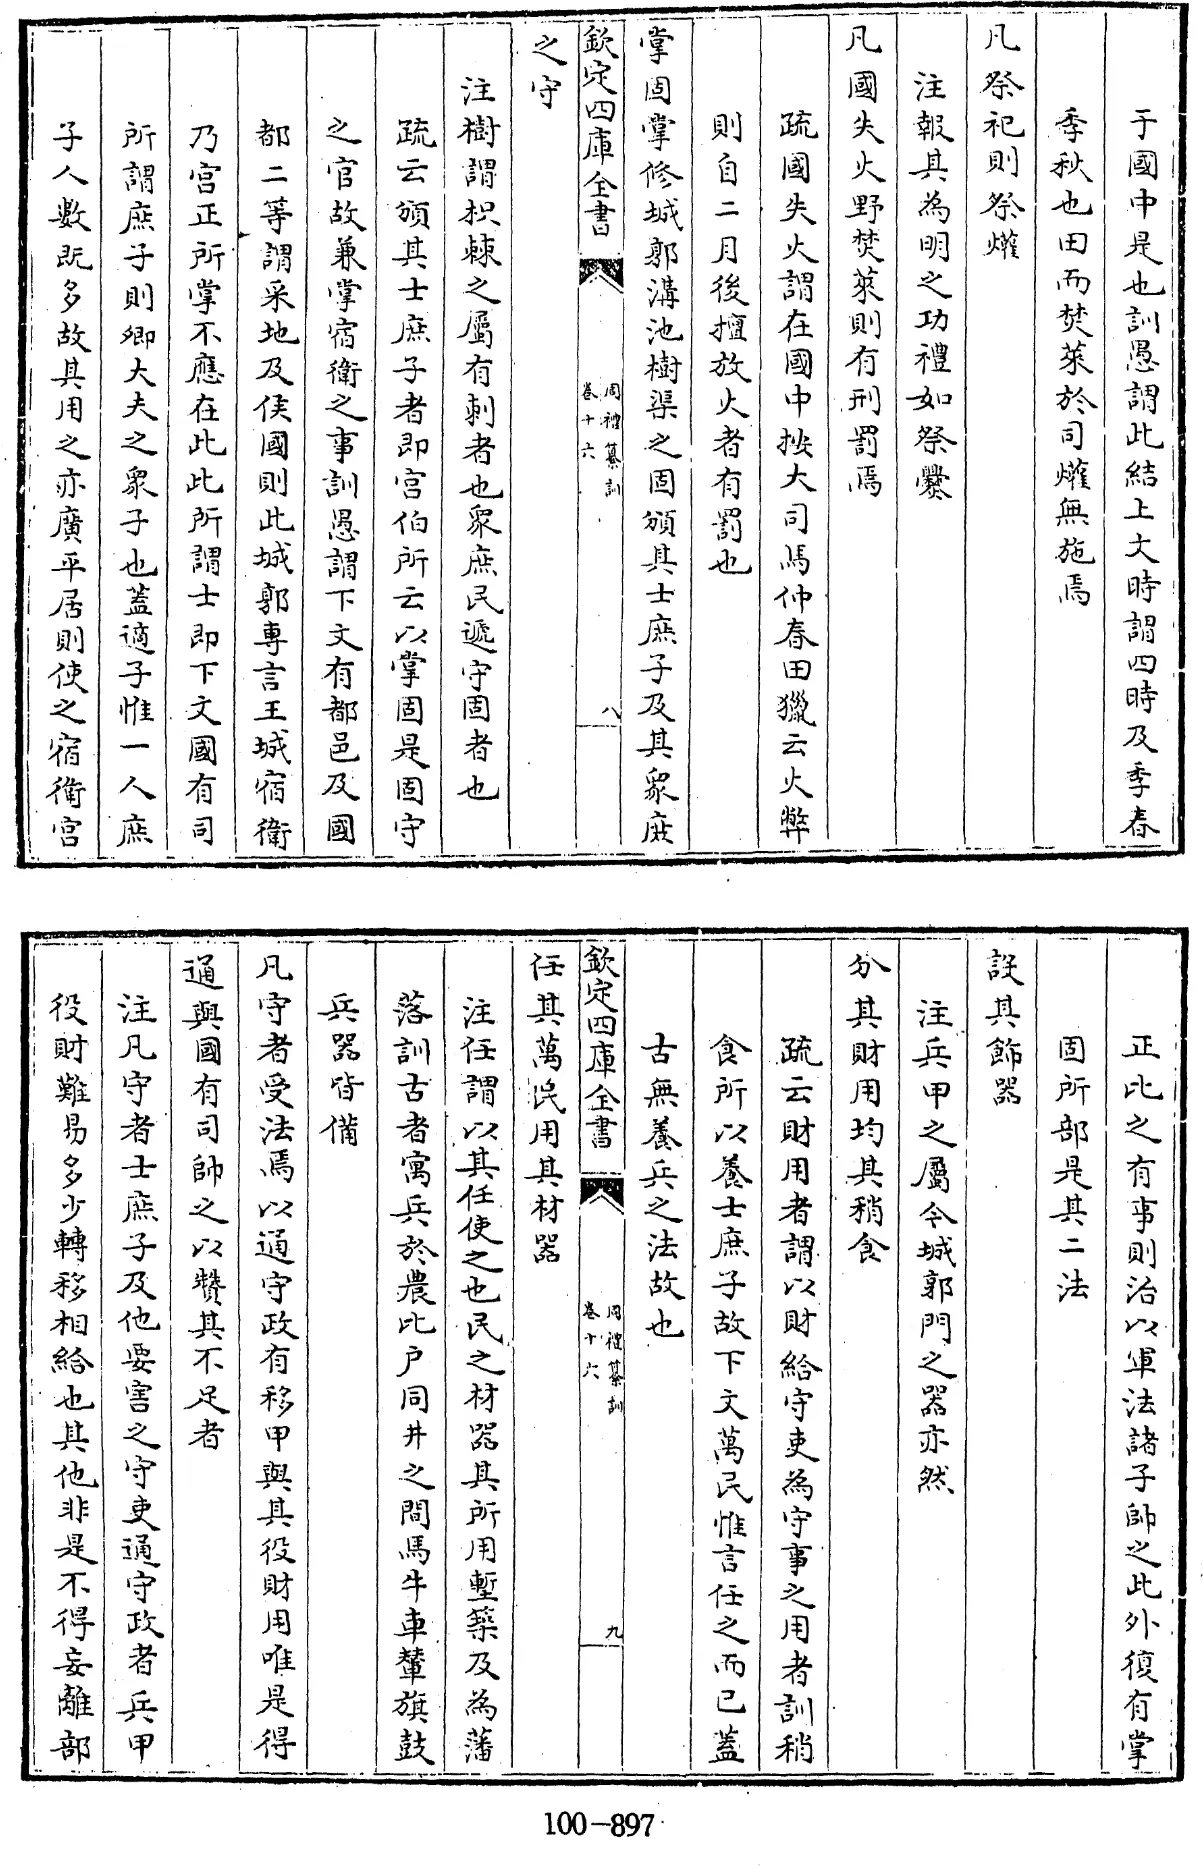 于國中是也訓愚謂此結上文時謂四時及季春
季秋也田而焚萊於司爟無施焉
凡祭祀則祭爟
注報其為明之功禮如祭爨
凡國失火野焚萊則有刑罰焉
疏國失火謂在國中按大司馬仲春田獵云火弊
則自二月後擅放火者有罰也
掌固掌修城郭溝池樹渠之固頒其士庶子及其衆庶
欽定四庫全書
周禮纂訓
卷十六
八
之守
注樹謂枳棘之屬有刺者也衆庶民遞守固者也
疏云頒其士庶子者即宮伯所云以掌固是固守
之官故兼掌宿衛之事訓愚謂下文有都邑及國
都二等謂采地及侯國則此城郭専言王城宿衛
乃宮正所掌不應在此此所謂士即下文國有司
所謂庶子則卿大夫之衆子也蓋適子惟一人庶
子人數既多故其用之亦廣平居則使之宿衛宮
正比之有事則治以軍法諸子帥之此外復有掌
固所部是其二法
設其飾器
注兵甲之屬令城郭門之器亦然
分其財用均其稍食
疏云財用者謂以財給守吏為守事之用者訓稍
食所以養士庶子故下文萬民惟言任之而已蓋
古無養兵之法故也
欽定四庫全書
周禮纂訓
卷十六
九
任其萬民用其材器
注任謂以其任使之也民之材器其所用塹築及為藩
落訓古者寓兵於農比户同井之間馬牛車輦旗鼓
兵器皆備
凡守者受法焉以通守政有移甲與其役財用唯是得
通與國有司帥之以贊其不足者
注凡守者士庶子及他要害之守吏通守政者兵甲
役財難易多少轉移相給也其他非是不得妄離部
100-897